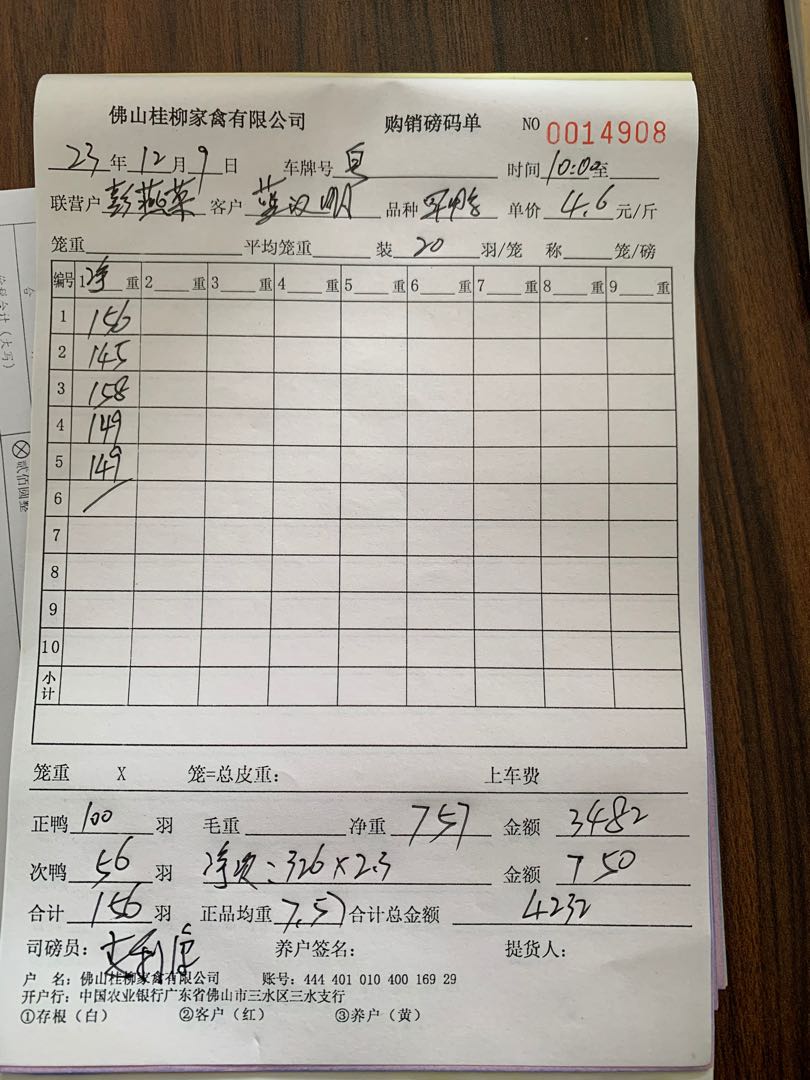 佛山桂柳家禽有限公司 购销磅码单 NO 0014908
23年12月9日 车牌号 自 时间10:00至
联营户 彭燕菜 客户 蓝汉明 品种 单价 4.6 元/斤
笼重 平均笼重 装 20 羽/笼 称 笼/磅
编号 1净重 2重 3重 4重 5重 6重 7重 8重 9重
1 156
2 145
3 158
4 149
5 149
6
7
8
9
10
小计
笼重 X 笼=总皮重: 上车费
正鸭 100 羽 毛重 净重 757 金额 3482
次鸭 56 羽 净次:326×2.3 金额 750
合计 156 羽 正品均重 7.57 合计总金额 4232
司磅员: 养户签名: 提货人:
户 名:佛山桂柳家禽有限公司 账号:444 401 010 400 169 29
开户行:中国农业银行广东省佛山市三水区三水支行
①存根(白) ②客户(红) ③养户(黄)
合
价税合计(大写)
ⓧ贰佰圆整